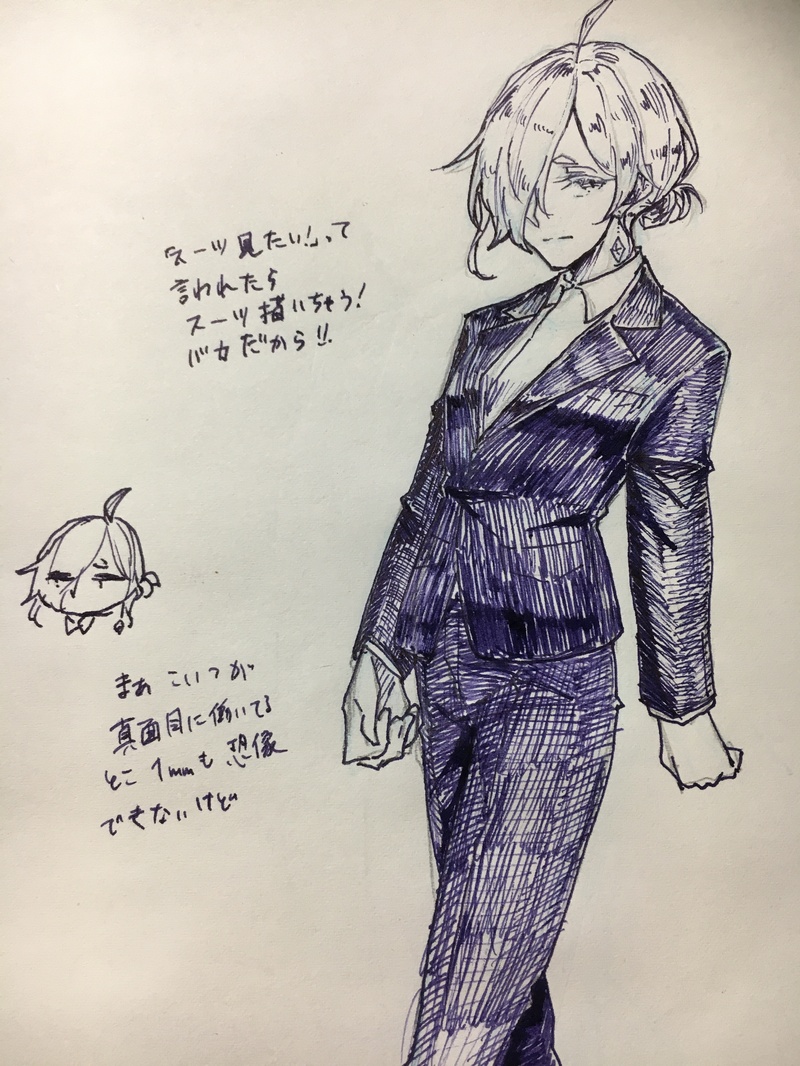 「スーツ見たい！」って
言われたら
スーツ描いちゃう！
バカだから!!
まあ こいつが
真面目に働いてる
とこ 1mmも 想像
できないけど